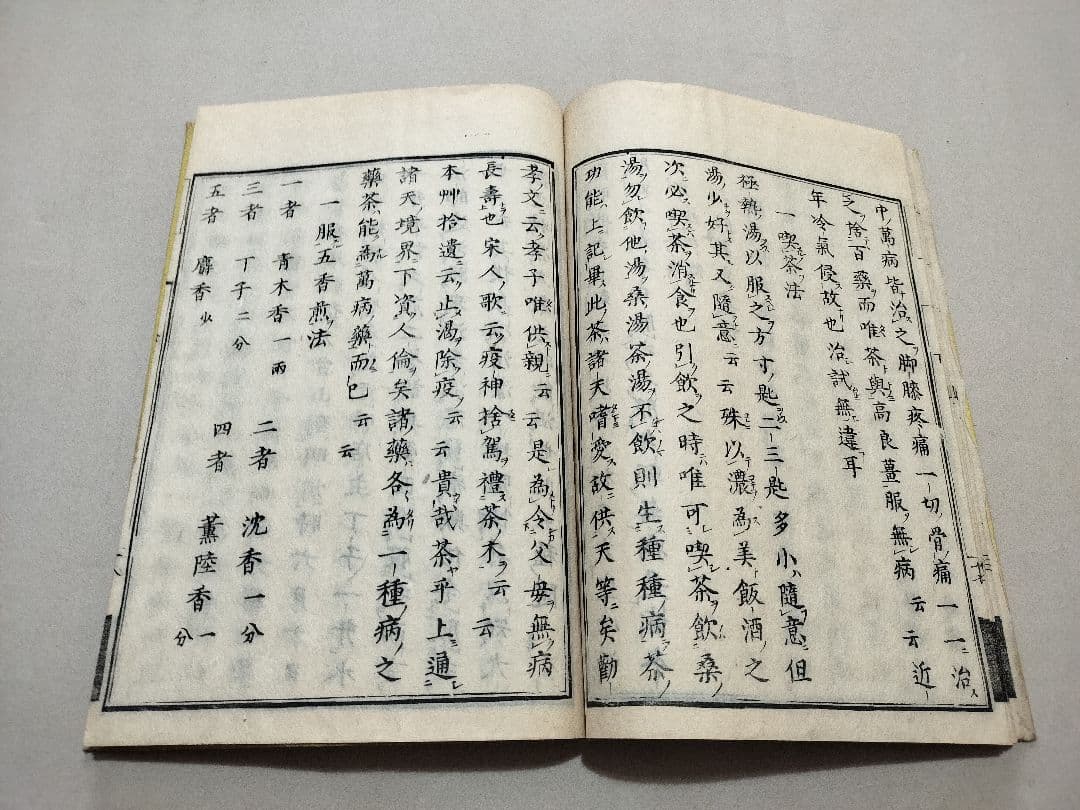 中萬病皆治之脚膝疼痛一切骨痛一一治
之捨百藥而唯茶與高良薑服無病云云近
年冷氣侵故也治試無違耳
一喫茶法
極熱湯以服之方寸匙二三匙多小隨意但
湯少好其又隨意云云殊以濃為美飯酒之
次必喫茶消食也引飲之時唯可喫茶飲桑
湯勿飲他湯桑湯茶湯不飲則生種種病茶
功能上記畢此茶諸天嗜愛故供天等矣勸
孝文云孝子唯供親云云是為令父母無病
長壽也宋人歌云疫神捨駕禮茶木云云
本艸拾遺云止渴除疫云云貴哉茶乎上通
諸天境界下資人倫矣諸藥各為一種病之
藥茶能為萬病藥而已云云
一服五香煎法
一者青木香一兩 二者沈香一分
三者丁子二分 四者薰陸香一分
五者麝香少